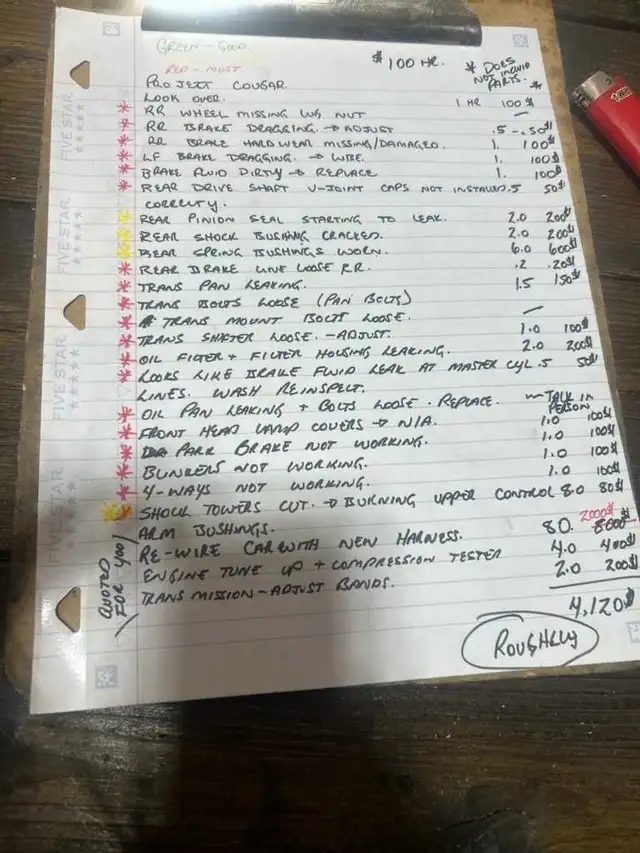 GREEN - GOOD.
RED - MUST
$100 HR.
* DOES NOT INCLUD PARTS. *
PROJECT COUGAR.
LOOK OVER. 1 HR 100$
* RR WHEEL MISSING LUG NUT —
* RR BRAKE DRAGGING. → ADJUST .5 - .50$
* RR BRAKE HARDWEAR MISSING/DAMAGED. 1. 100$
* LF BRAKE DRAGGING. → LUBE. 1. 100$
* BRAKE FLUID DIRTLY → REPLACE 1. 100$
* REAR DRIVE SHAFT U-JOINT CAPS NOT INSTALLED .5 50$
CORRECTLY.
* REAR PINION SEAL STARTING TO LEAK. 2.0 200$
* REAR SHOCK BUSHING CRACKED. 2.0 200$
* REAR SPRING BUSHINGS WORN. 6.0 600$
* REAR BRAKE LINE LOOSE RR. .2 .20$
* TRANS PAN LEAKING. 1.5 150$
* TRANS BOLTS LOOSE (PAN BOLTS)
* TRANS MOUNT BOLTS LOOSE. —
* TRANS SHIFTER LOOSE. - ADJUST. 1.0 100$
* OIL FILTER + FILTER HOUSING LEAKING. 2.0 200$
* LOOKS LIKE BRAKE FLUID LEAK AT MASTER CYL .5 50$
LINES. WASH REINSPECT.
* OIL PAN LEAKING + BOLTS LOOSE. REPLACE. ~ TALK IN PERSON
* FRONT HEAD LAMP COVERS → N/A. 1.0 100$
* PARK BRAKE NOT WORKING. 1.0 100$
* BLINKERS NOT WORKING. 1.0 100$
* 4-WAYS NOT WORKING. 1.0 100$
* SHOCK TOWERS CUT. → BURNING UPPER CONTROL 8.0 80$
ARM BUSHINGS.
RE-WIRE CAR WITH NEW HARNESS. 80. 2000$ 8000$
ENGINE TUNE UP + COMPRESSION TESTER 4.0 400$
TRANSMISSION - ADJUST BANDS. 2.0 200$
QUOTED FOR YOU
4,120$
ROUGHLLY
FIVE STAR
FIVE STAR
FIVE STAR
FIVE STAR